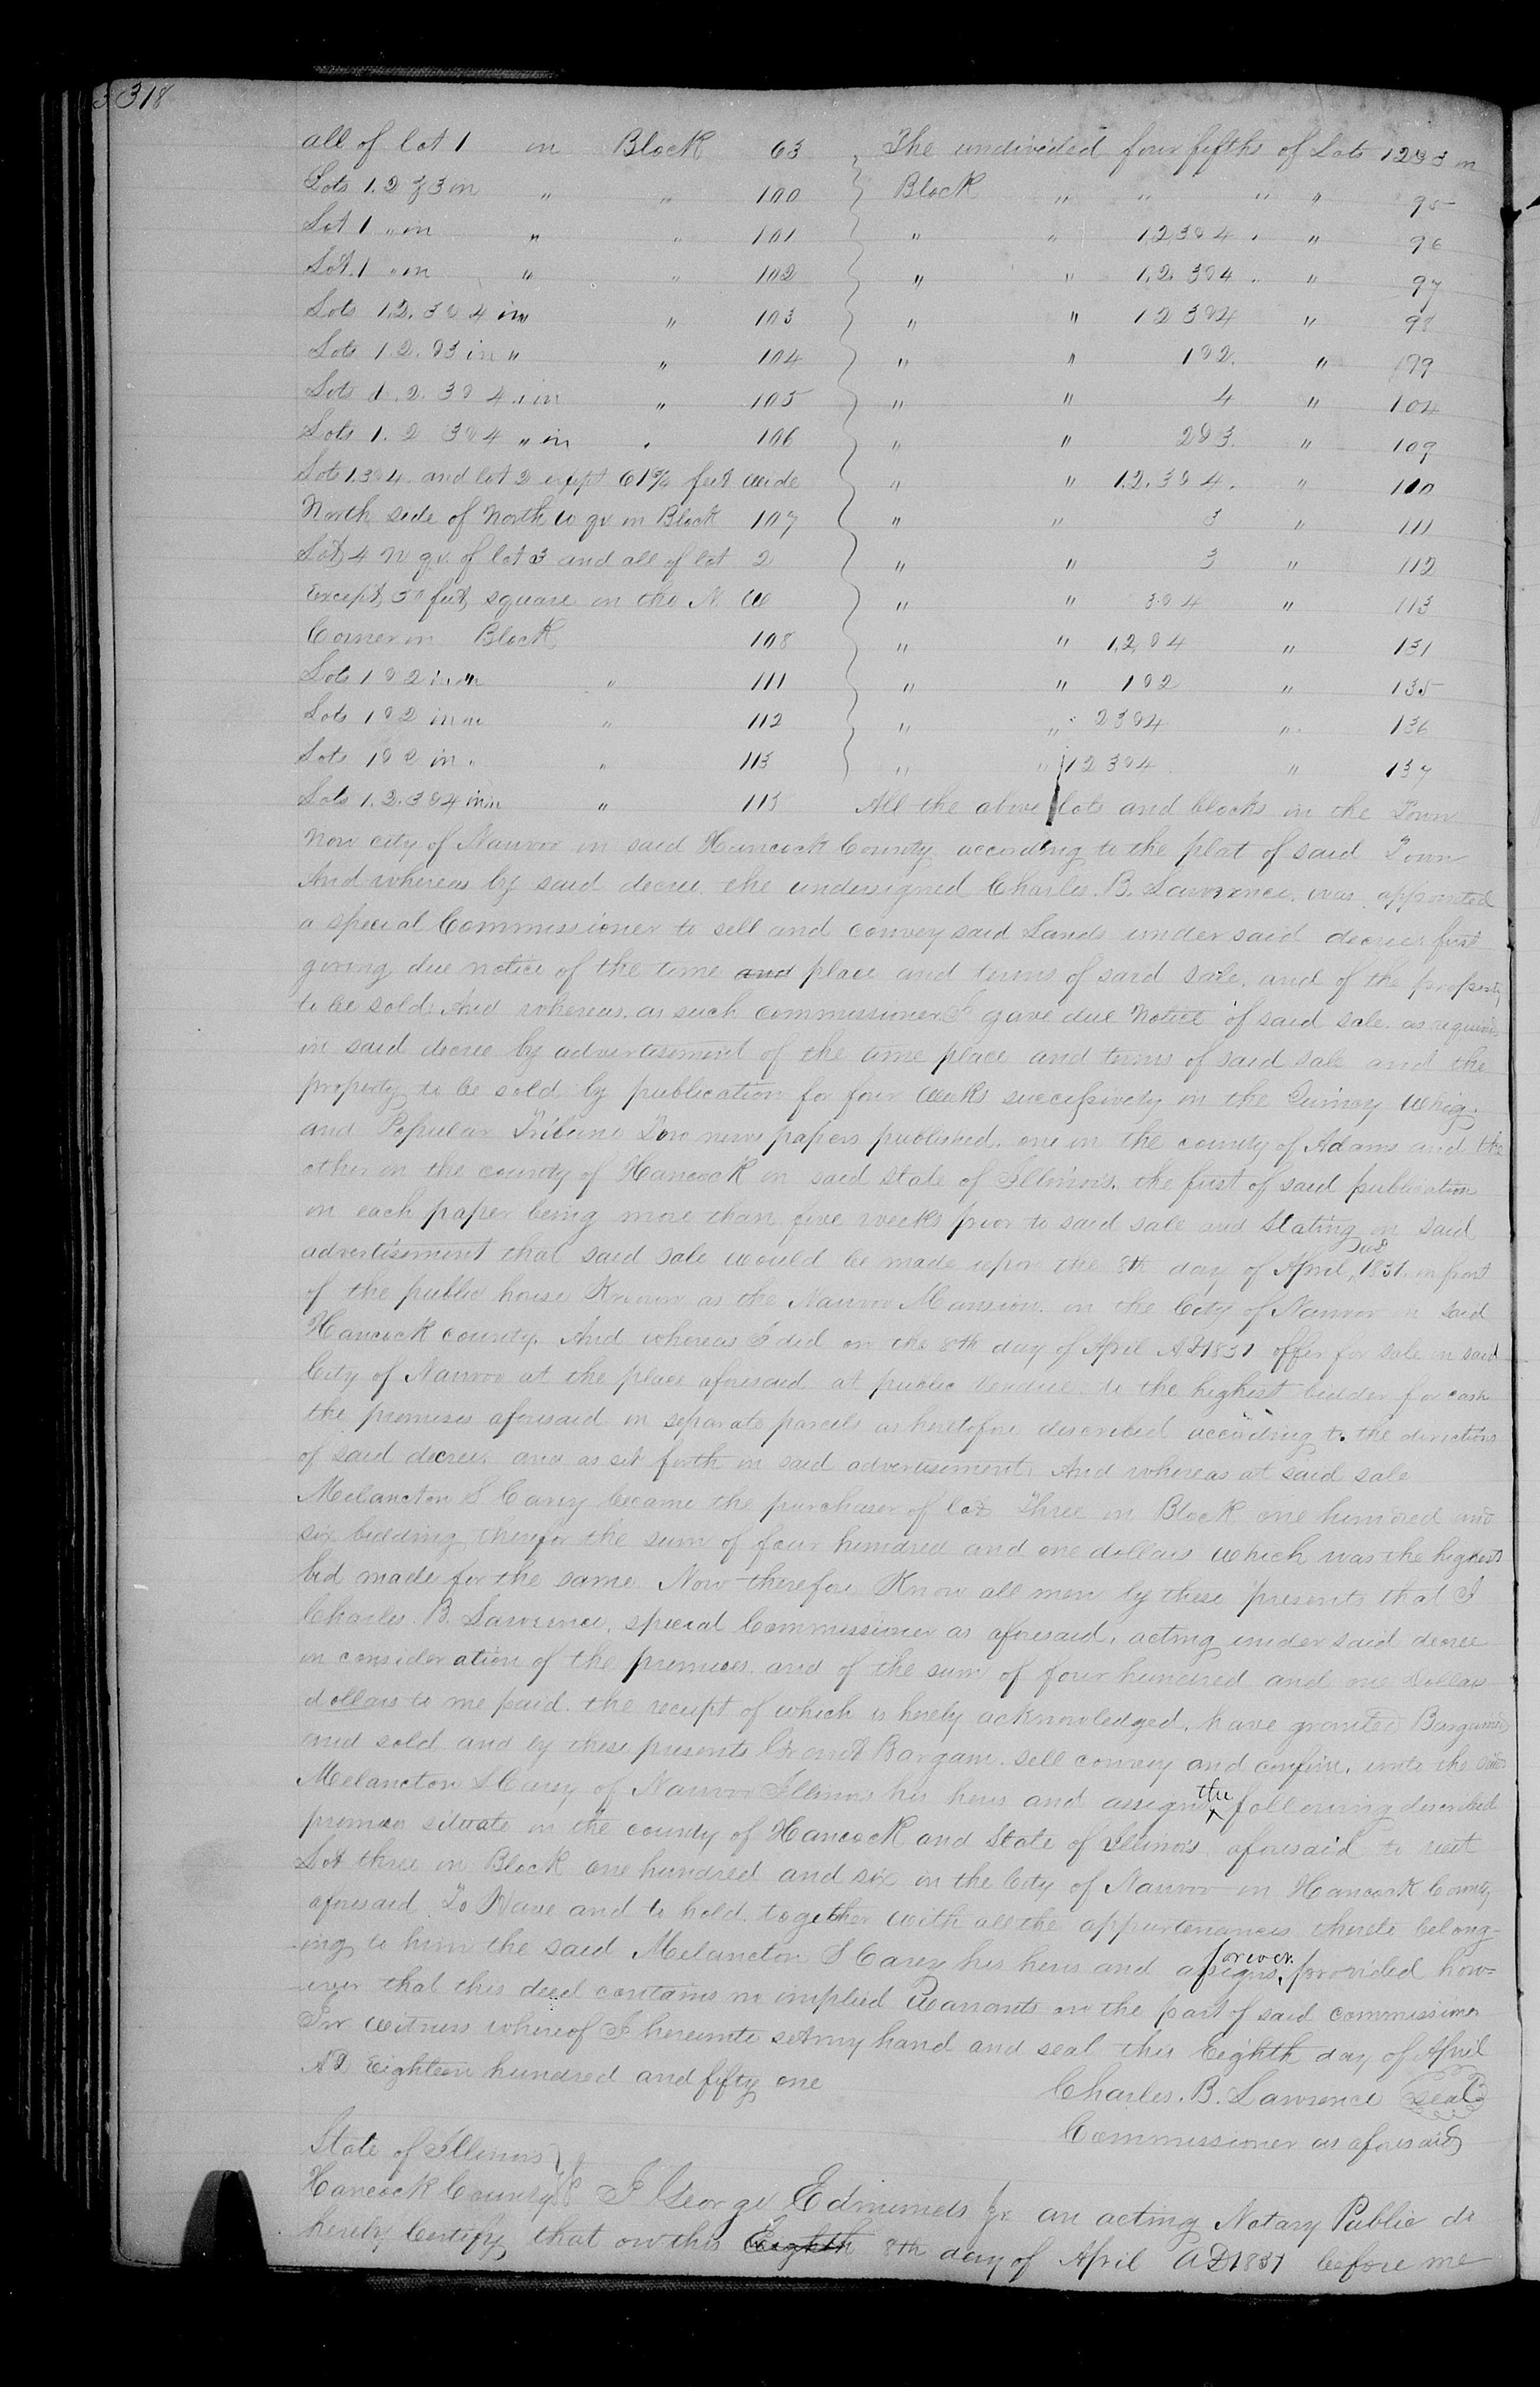 318
all of lot 1 in Block 63 , The undivided four fifths of Lots 1 2 & 3 in
Lots 1. 2 & 3 in " " 100 } Block " " " " 95
Lot 1 " in " " 101 " " 1,2,3 & 4 . " 96
Lot. 1 " in " " 102 } " " 1,2, 3 & 4 . " 97
Lots 1,2. 3 & 4 in " " 103 } " " 1 2 3 & 4 " 98
Lots 1. 2. & 3 in " " 104 } " " 1 & 2. " 99
Lots 1. 2. 3 & 4. " in " 105 } " " 4 " 104
Lots 1. 2 3 & 4 " in " 106 " " 2 & 3. " 109
Lots 1. 3 & 4. and lot 2 except 61 3/4 feet wide " " 1. 2. 3 & 4. " 110
North side of North W qr in Block 107 } " " 3 " 111
Lot 4 N qr. of lot 3 and all of lot 2 } " " 3 " 112
Except 50 feet square in the N. W } " " 3 & 4 " 113
Corner in Block 108 } " " 1, 2, & 4 " 131
Lots 1 & 2 in " " 111 } " " 1 & 2 " 135
Lots 1 & 2 in " " 112 } " " 2 3 & 4 " 136
Lots 1 & 2 in " " 113 } " " 1 2 3 & 4 " 137
Lots 1. 2. 3 & 4 in " " 115 All the above lots and blocks in the Town
Now city of Nauvoo in said Hancock County according to the plat of said Town
And whereas by said decree. the undersigned Charles. B. Lawrence. was appointed
a special Commissioner to sell and convey said Lands under said decree first
giving due notice of the time and place and terms of said sale. and of the property
to be sold. And whereas. as such commissioner. I gave due Notice of said sale. as required
in said decree by advertisement of the time place and terms of said sale and the
property to be sold by publication for four Weeks successively in the Quincy Whig.
and Popular Tribune Two news papers published. one in the county of Adams and the
other in the county of Hancock in said state of Illinois. the first of said publication
in each paper being more than five weeks prior to said sale and stating in said
advertisement that said sale would be made upon the 8th day of April, AD 1851. in front
of the public house Known as the Nauvoo Mansion. in the City of Nauvoo in said
Hancock county. And whereas I did on the 8th day of April AD 1851 offer for sale in said
City of Nauvoo at the place aforesaid at public vendue to the highest bidder for cash
the premises aforesaid in separate parcels as heretofore described according to the directions
of said decree. and as set forth in said advertisement. And whereas at said sale
Melancton S Carey became the purchaser of lot Three in Block one hundred and
six bidding therefor the sum of four hundred and one dollars which was the highest
bid made for the same. Now therefore Know all men by these presents that I
Charles. B. Lawrence, special Commissioner as aforesaid. acting under said decree
in consideration of the premises. and of the sum of four hundred and one Dollars
dollars to me paid. the receipt of which is hereby acknowledged. have granted Bargained
and sold and by these presents Grant Bargain. sell convey and confirm. unto the said
Melancton S Carey of Nauvoo Illinois his heirs and assigns the following described
premises situate in the county of Hancock and State of Illinois aforesaid to wit
Lot three in Block one hundred and six in the City of Nauvoo in Hancock County
aforesaid. To Have and to hold. together with all the appurtenances thereto belong-
ing to him the said Melancton S Carey his heirs and assigns, forever. provided how=
ever that this deed contains no implied Warrants on the part of said commissioner
In witness whereof I hereunto set my hand and seal this Eighth day of April
AD Eighteen hundred and fifty one Charles. B. Lawrence seal
Commissioner as aforesaid
State of Illinois
Hancock County } I George Edmunds Jr an acting Notary Public do
hereby Certify that on this Eighth 8th day of April AD 1851 before me